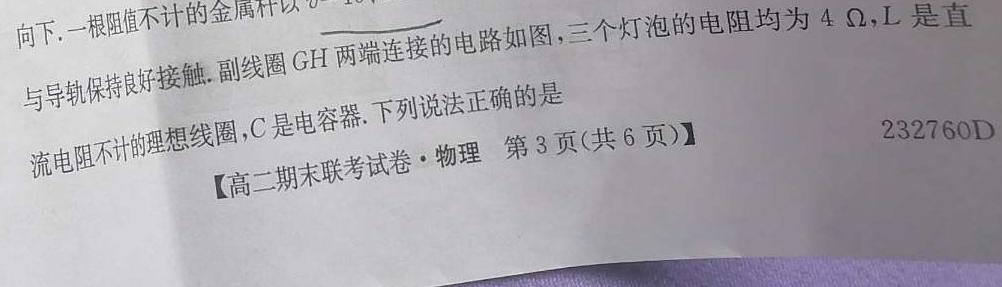 向下.一根阻值不计的金属杆以
与导轨保持良好接触.副线圈 GH 两端连接的电路如图,三个灯泡的电阻均为 4 Ω,L 是直
流电阻不计的理想线圈,C 是电容器.下列说法正确的是
【高二期末联考试卷·物理 第 3 页(共 6 页)】
232760D